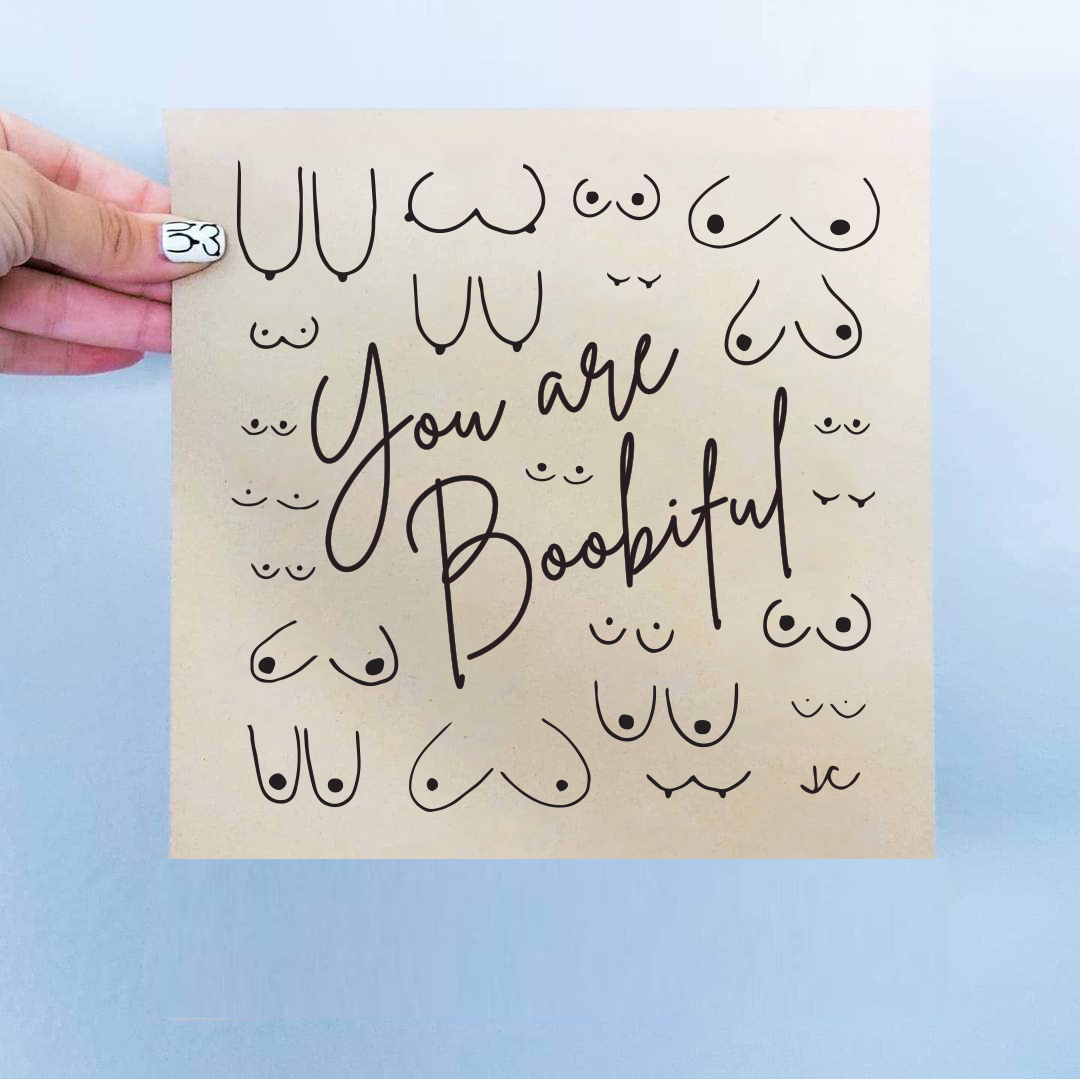 You are
Boobiful